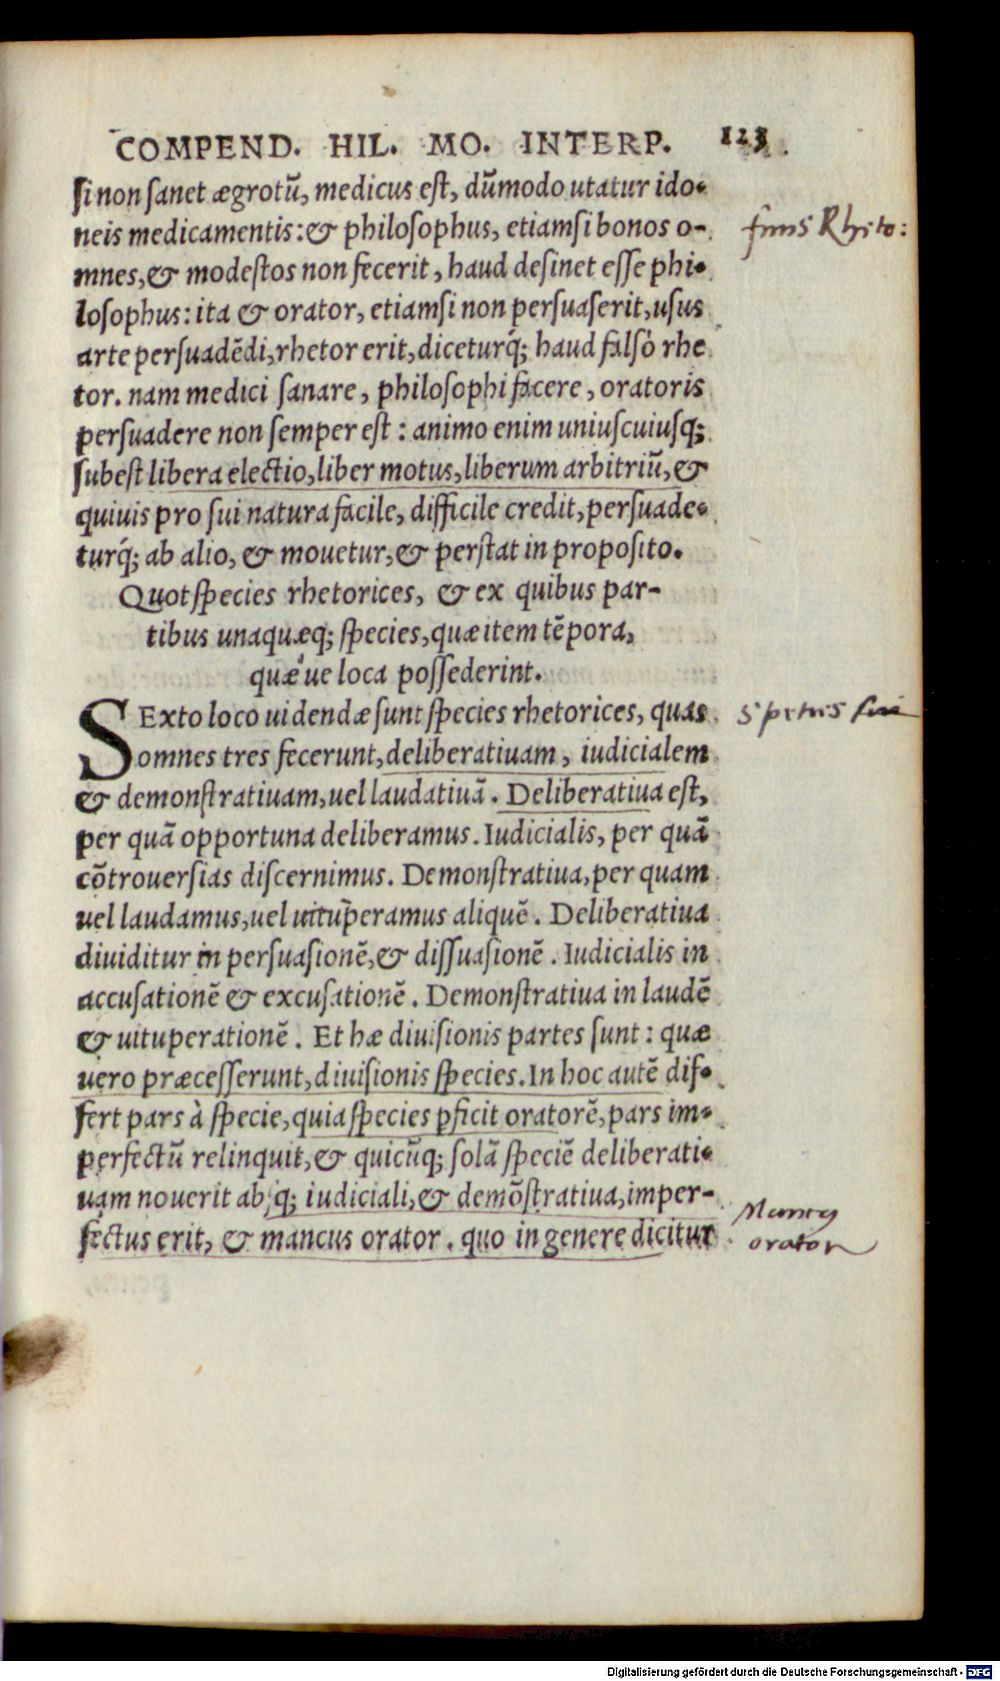 COMPEND. HIL. MO. INTERP. 123.
si non sanet ægrotū, medicus est, dūmodo utatur ido-
neis medicamentis: & philosophus, etiamsi bonos o-
mnes, & modestos non fecerit, haud desinet esse phi-
losophus: ita & orator, etiamsi non persuaserit, usus
arte persuadēdi, rhetor erit, diceturq́; haud falsò rhe
tor. nam medici sanare, philosophi facere, oratoris
persuadere non semper est: animo enim uniuscuiusq;
subest libera electio, liber motus, liberum arbitriū, &
quiuis pro sui natura facile, difficile credit, persuade-
turq́; ab alio, & mouetur, & perstat in proposito.
Quot species rhetorices, & ex quibus par-
tibus unaquæq; species, quæ item tēpora,
quæ'ue loca possederint.
SExto loco uidendæ sunt species rhetorices, quas
omnes tres fecerunt, deliberatiuam, iudicialem
& demonstratiuam, uel laudatiuā. Deliberatiua est,
per quā opportuna deliberamus. Iudicialis, per quā
cōtrouersias discernimus. Demonstratiua, per quam
uel laudamus, uel uituperamus aliquē. Deliberatiua
diuiditur in persuasionē, & dissuasionē. Iudicialis in
accusationē & excusationē. Demonstratiua in laudē
& uituperationē. Et hæ diuisionis partes sunt: quæ
uero præcesserunt, diuisionis species. In hoc autē dif-
fert pars à specie, quia species ꝑficit oratorē, pars im-
perfectū relinquit, & quicūq; solā speciē deliberati-
uam nouerit absq; iudiciali, & demōstratiua, imper-
fectus erit, & mancus orator. quo in genere dicitur
finis Rhito:
Mancus
orator
Digitalisierung gefördert durch die Deutsche Forschungsgemeinschaft - DFG